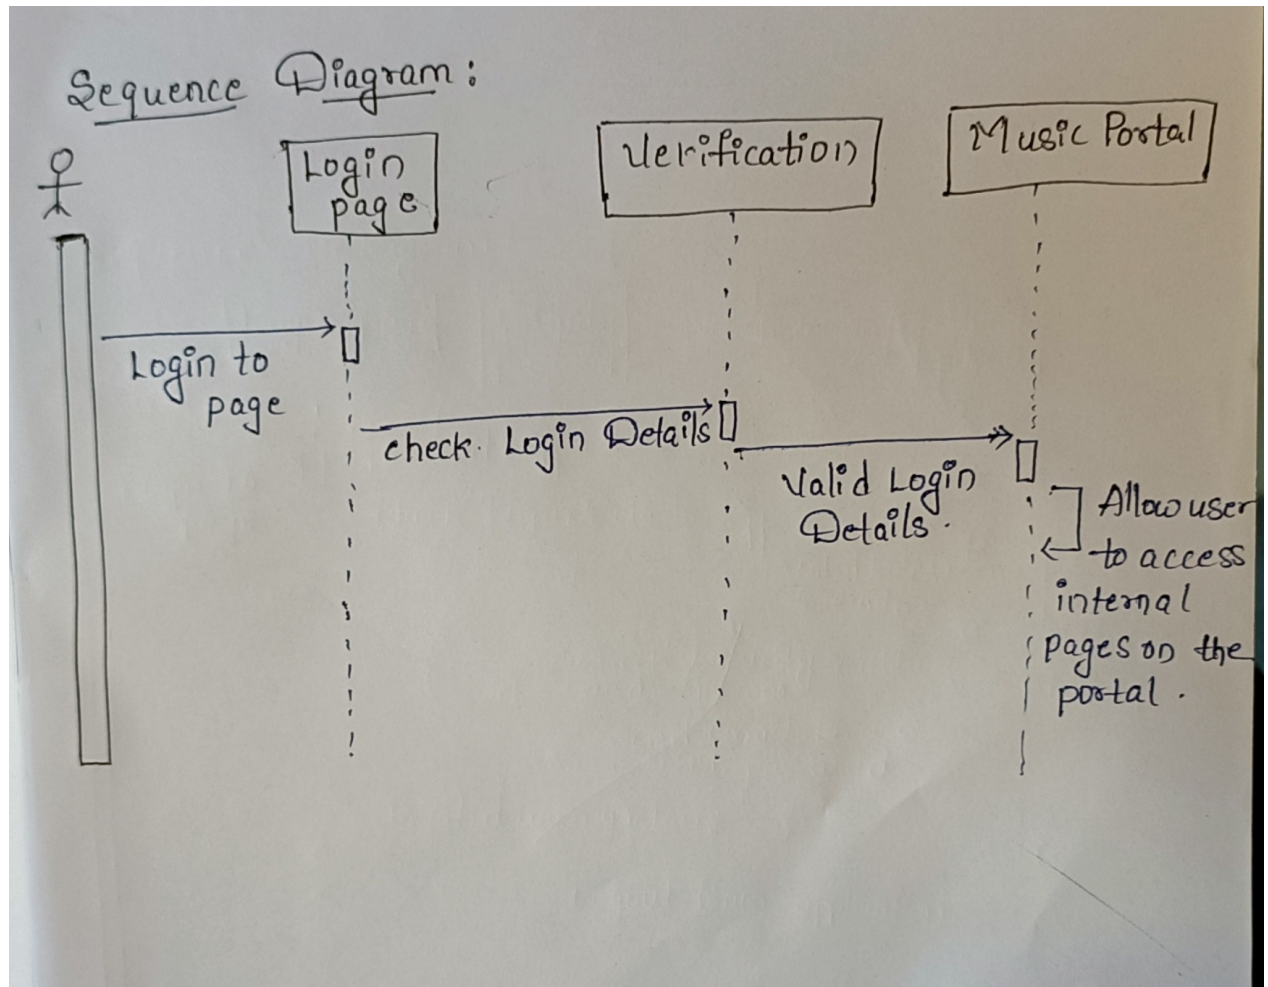 Sequence Diagram:
Login
page
Verification
Music Portal
Login to
page
check. Login Details
Valid Login
Details.
Allow user
to access
internal
pages on the
portal.